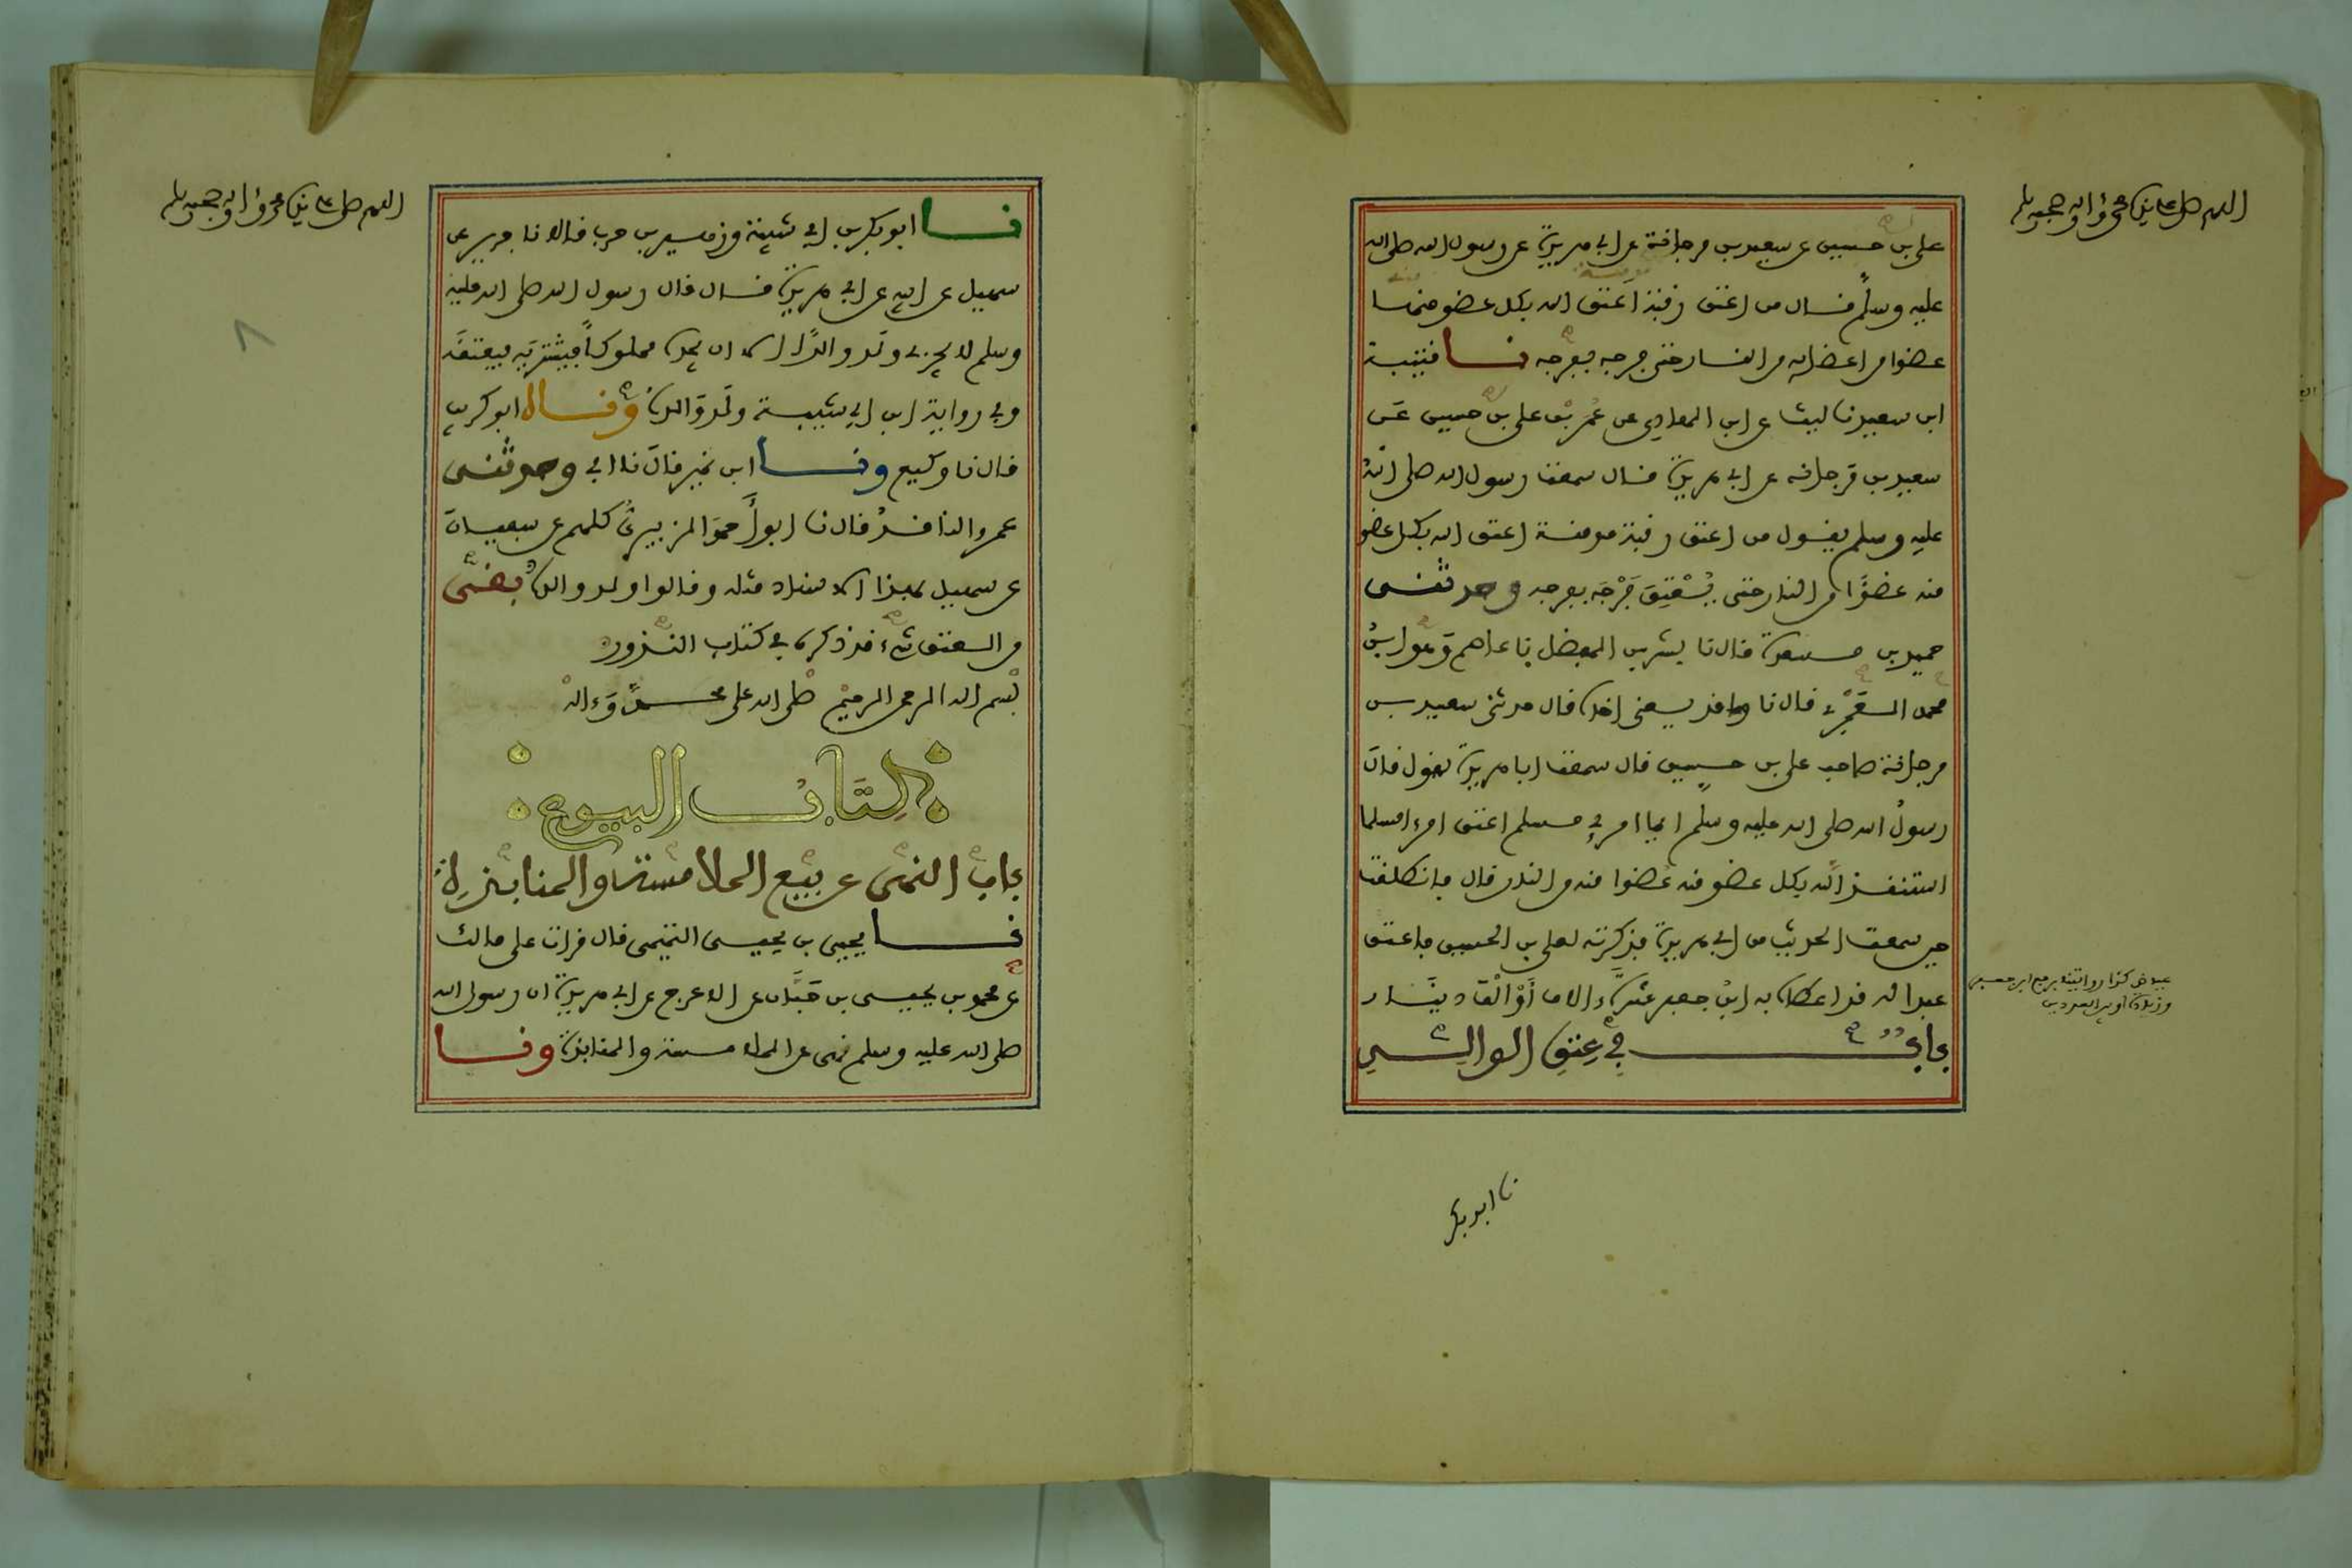 اللهم صل على نبينا محمد وءاله وصحبه وسلم
علي بن حسين عن سعيد بن مرجانة عن ابي هريرة عن رسول الله صلى الله
عليه وسلم قال من اعتق رقبة اعتق الله بكل عضو منها
عضوا من اعضائه من النار حتى فرجه بفرجه نا قتيبة
ابن سعيد نا ليث عن ابن الهادي عن عمر بن علي بن حسين عن
سعيد بن مرجانه عن ابي هريرة قال سمعت رسول الله صلى الله
عليه وسلم يقول من اعتق رقبة مومنة اعتق الله بكل عضو
منه عضوا من النار حتى يعتق فرجه بفرجه وحدثني
حميد بن مسعدة قال نا بشر بن المفضل نا عاصم وهو ابن
محمد العمري قال نا واقد يعني اخاه قال حدثني سعيد بن
مرجانة صاحب علي بن حسين قال سمعت ابا هريرة يقول قال
رسول الله صلى الله عليه وسلم ايما امرئ مسلم اعتق امرءا مسلما
استنقذ الله بكل عضو منه عضوا منه من النار قال فانطلقت
حين سمعت الحديث من ابي هريرة فذكرته لعلي بن الحسين فاعتق
عبدا له قد اعطاه به ابن جعفر عشرة ءالاف أو ألف دينار
باب في عتق الوالد
نا ابو بكر
اللهم صل على نبينا محمد وءاله وصحبه وسلم
نا ابو بكر بن ابي شيبة وزهير بن حرب قالا نا جرير عن
سهيل عن ابيه عن ابي هريرة قال قال رسول الله صلى الله عليه
وسلم لا يجزي ولد والدا الا ان يجده مملوكا فيشتريه فيعتقه
وفي رواية ابن ابي شيبة ولد والده وقال ابو كريب
قال نا وكيع ونا ابن نمير قال نا ابي وحدثني
عمرو الناقد قال نا ابو أحمد الزبيري كلهم عن سفيان
عن سهيل بهذا الاسناد مثله وقالوا ولد والده بقى
من العتق شيء قد ذكره في كتاب النذور
بسم الله الرحمن الرحيم صلى الله على محمد وءاله
كتاب البيوع
باب النهي عن بيع الملامسة والمنابذة
نا يحيى بن يحيى التميمي قال قرات على مالك
عن محمد بن يحيى بن حبان عن الاعرج عن ابي هريرة ان رسول الله
صلى الله عليه وسلم نهى عن الملامسة والمنابذة ونا